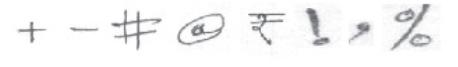 + - # @ ₹ ! , %